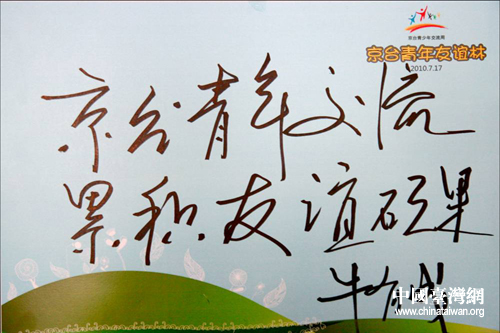 京台青少年交流周
京台青年友谊林
2010.7.17
京台青年交流
累积友谊硕果
中國臺灣網
www.chinataiwan.org